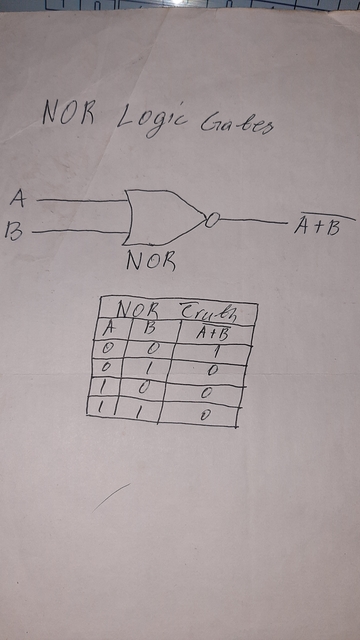 NOR Logic Gates
A
B
A+B
NOR
NOR Truth
A B A+B
0 0 1
0 1 0
1 0 0
1 1 0